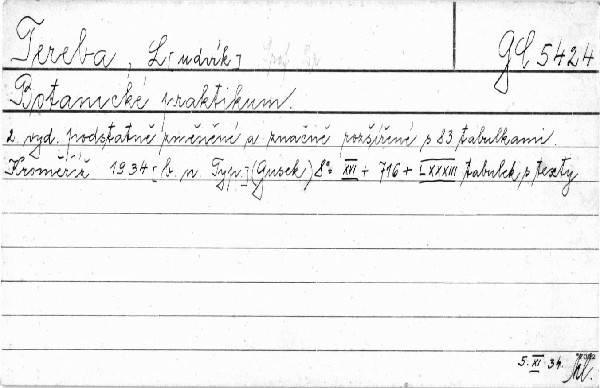 Tereba, L[udvík] Gd 5424
Botanické praktikum.
2. vyd. podstatně změněné a značně rozšířené s 83 tabulkami.
Kroměříž 1934 [b. n. Typ.] (Gusek) 8° XVI + 716 + LXXXIII tabulek s texty
5. XI 34.